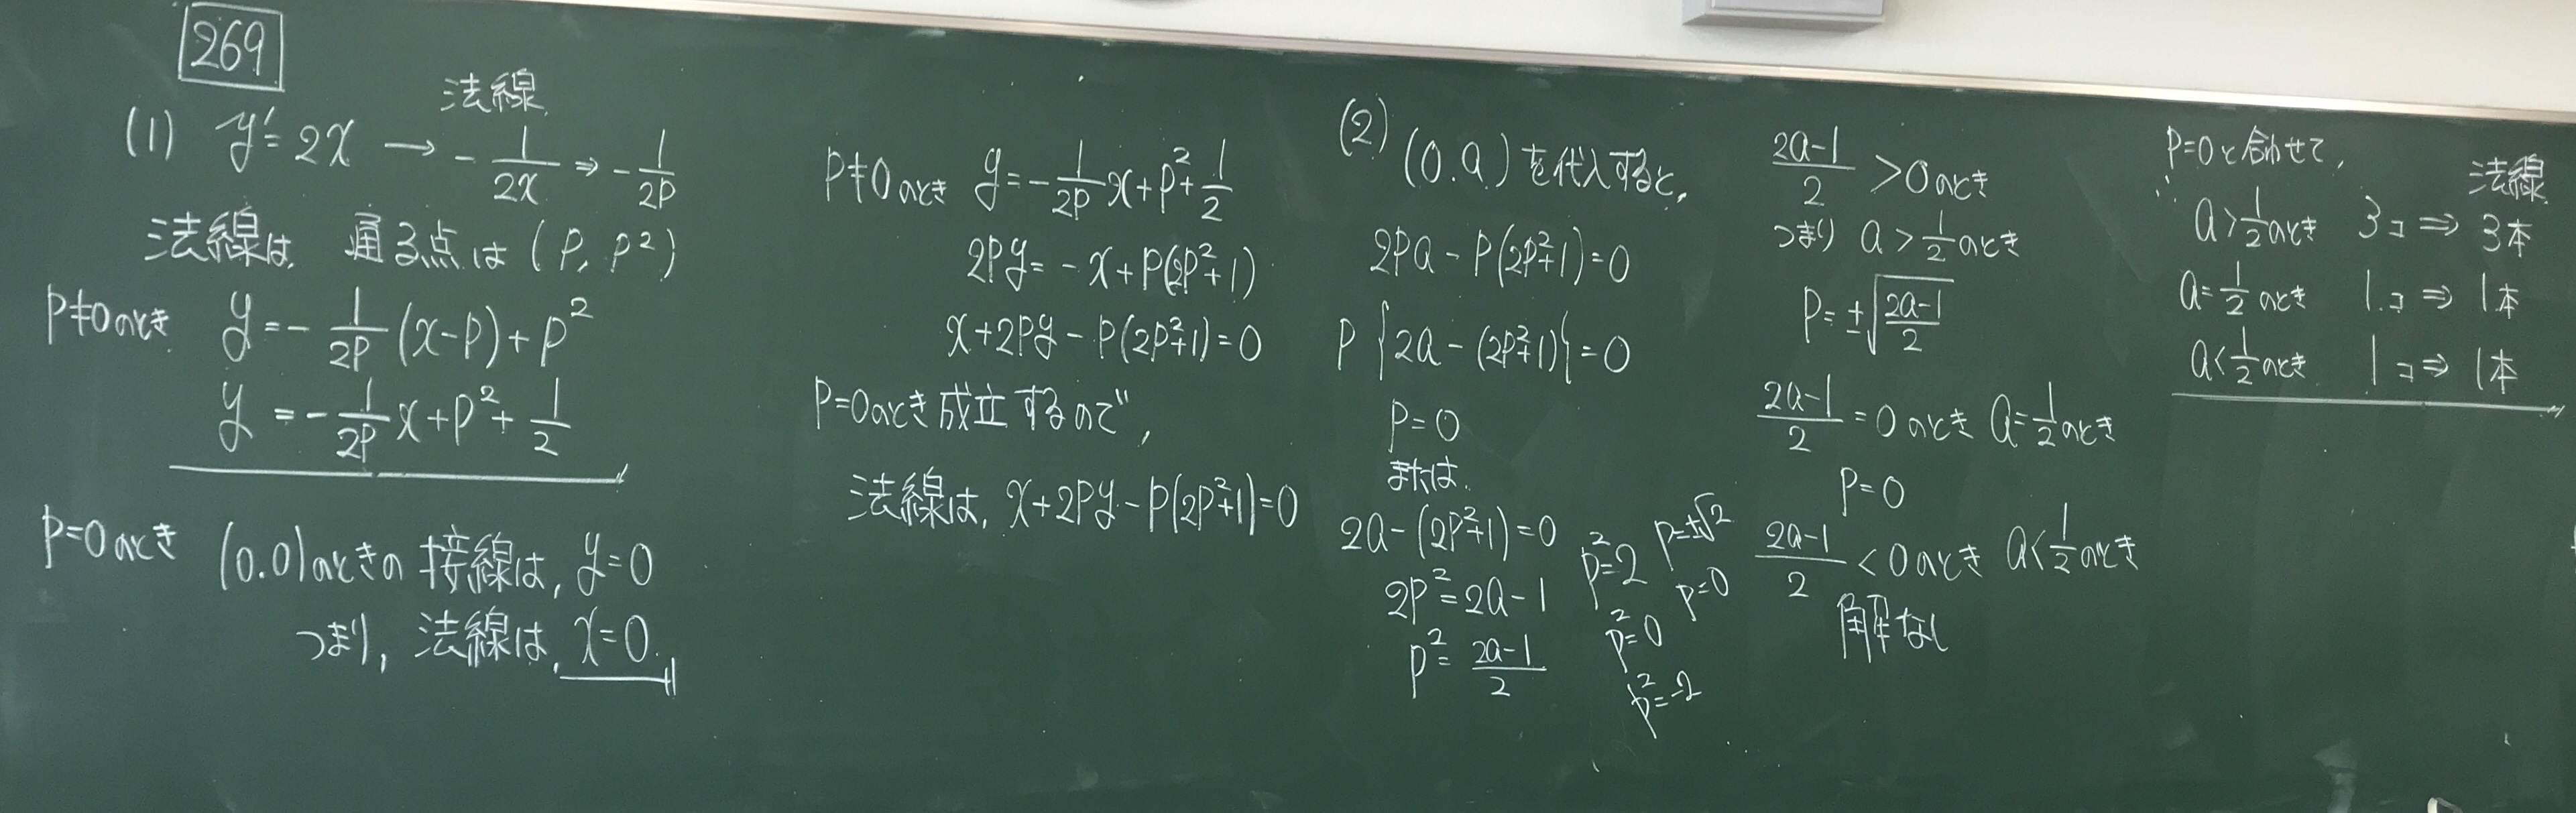 269
法線
(1) y'=2x → -1/2x ⇒ -1/2p
法線は, 通る点は (p, p²)
p≠0のとき y=-1/2p(x-p)+p²
y=-1/2p x+p²+1/2
p=0のとき (0.0)のときの接線は, y=0
つまり, 法線は, x=0.
p≠0のとき y=-1/2p x+p²+1/2
2py=-x+p(2p²+1)
x+2py-p(2p²+1)=0
p=0のとき成立するので,
法線は, x+2py-p(2p²+1)=0
(2) (0.a)を代入すると,
2pa-p(2p²+1)=0
p{2a-(2p²+1)}=0
p=0
または.
2a-(2p²+1)=0
2p²=2a-1
p²=2a-1/2
p²=2 p=±√2
p²=0 p=0
p²=-2
2a-1/2 >0のとき
つまり a>1/2のとき
p=±√2a-1/2
2a-1/2=0のとき a=1/2のとき
p=0
2a-1/2<0のとき a<1/2のとき
解なし
p=0と合わせて,
法線
∴ a>1/2のとき 3コ⇒3本
a=1/2のとき 1コ⇒1本
a<1/2のとき 1コ⇒1本